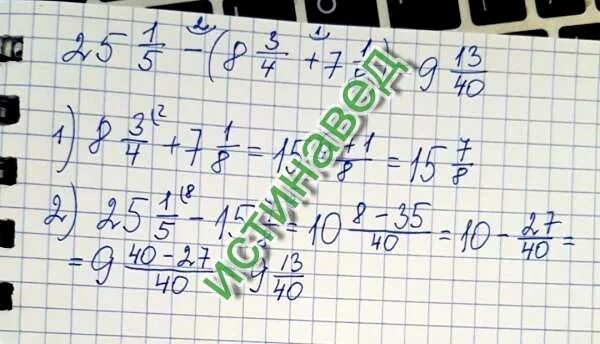 25 1/5 - (8 3/4 + 7 1/ 9 13/40
1) 8 3/4 + 7 1/8 = 15 +1/8 = 15 7/8
2) 25 1/5 - 15 = 10 8-35/40 = 10 - 27/40 =
= 9 40-27/40 9 13/40
истинавед